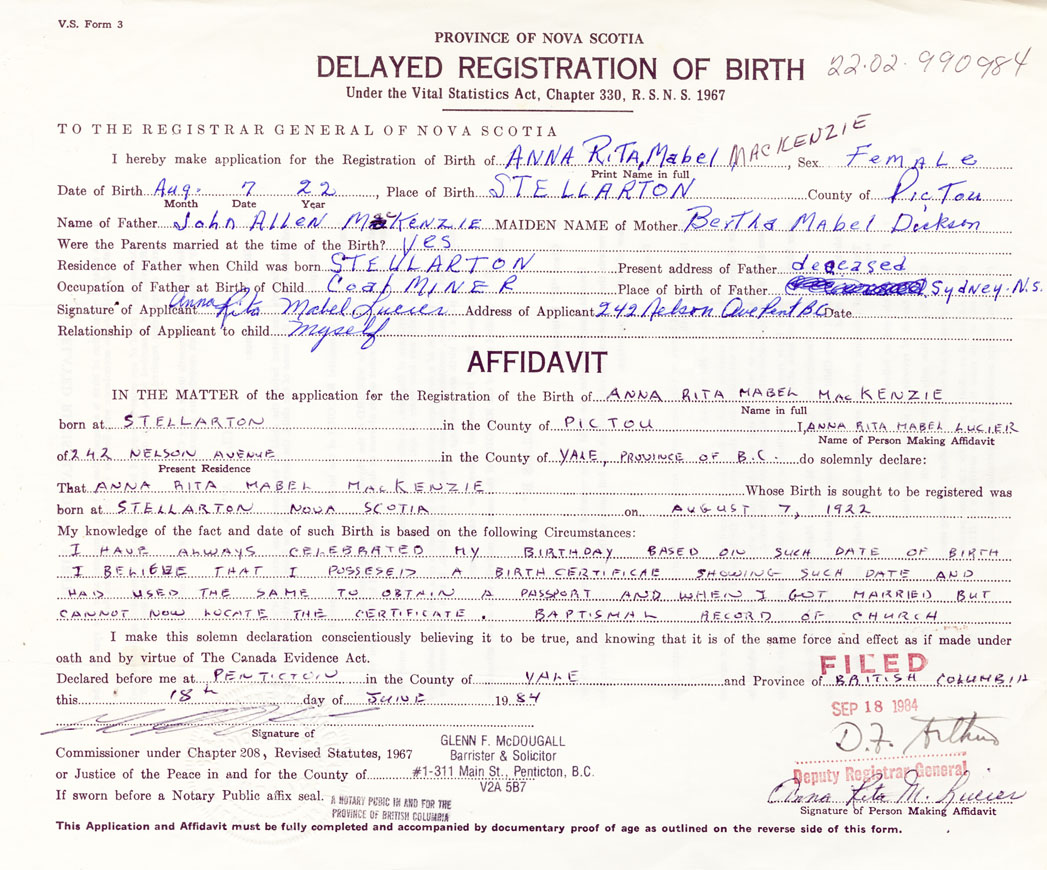 V.S. Form 3
PROVINCE OF NOVA SCOTIA
DELAYED REGISTRATION OF BIRTH 22.02.990984
Under the Vital Statistics Act, Chapter 330, R.S.N.S. 1967
TO THE REGISTRAR GENERAL OF NOVA SCOTIA
I hereby make application for the Registration of Birth of ANNA RITA, Mabel MACKENZIE, Sex Female
Print Name in full
Date of Birth Aug. 7 22, Place of Birth STELLARTON County of PicTou
Month Date Year
Name of Father John Allen MacKENZIE MAIDEN NAME of Mother Bertha Mabel Dickson
Were the Parents married at the time of the Birth? yes
Residence of Father when Child was born STELLARTON Present address of Father deceased
Occupation of Father at Birth of Child Coal MINER Place of birth of Father Sydney. N.S.
Signature of Applicant Anna Rita Mabel Lucier Address of Applicant 242 Nelson Ave Pent BC Date
Relationship of Applicant to child myself
AFFIDAVIT
IN THE MATTER of the application for the Registration of the Birth of ANNA RITA MABEL MacKENZIE
Name in full
born at STELLARTON in the County of PICTOU I, ANNA RITA MABEL LUCIER
Name of Person Making Affidavit
of 242 NELSON AVENUE in the County of YALE, PROVINCE OF B.C. do solemnly declare:
Present Residence
That ANNA RITA MABEL MacKENZIE Whose Birth is sought to be registered was
born at STELLARTON NOVA SCOTIA on AUGUST 7, 1922
My knowledge of the fact and date of such Birth is based on the following Circumstances:
I HAVE ALWAYS CELEBRATED MY BIRTHDAY BASED ON SUCH DATE OF BIRTH
I BELIEVE THAT I POSSESED A BIRTH CERTIFICAE SHOWING SUCH DATE AND
HAD USED THE SAME TO OBTAIN A PASSPORT AND WHEN I GOT MARRIED BUT
CANNOT NOW LOCATE THE CERTIFICATE. BAPTISMAL RECORD OF CHURCH
I make this solemn declaration conscientiously believing it to be true, and knowing that it is of the same force and effect as if made under
oath and by virtue of The Canada Evidence Act.
FILED
Declared before me at PENTICTON in the County of YALE and Province of BRITISH COLUMBIA
this 18th day of JUNE 1984
SEP 18 1984
D.F. Arthur
Signature of
Commissioner under Chapter 208, Revised Statutes, 1967
or Justice of the Peace in and for the County of
GLENN F. McDOUGALL
Barrister & Solicitor
#1-311 Main St., Penticton, B.C.
V2A 5B7
Deputy Registrar General
Anna Rita M. Lucier
Signature of Person Making Affidavit
If sworn before a Notary Public affix seal.
A NOTARY PUBIC IN AND FOR THE
PROVINCE OF BRITISH COLUMBIA
This Application and Affidavit must be fully completed and accompanied by documentary proof of age as outlined on the reverse side of this form.